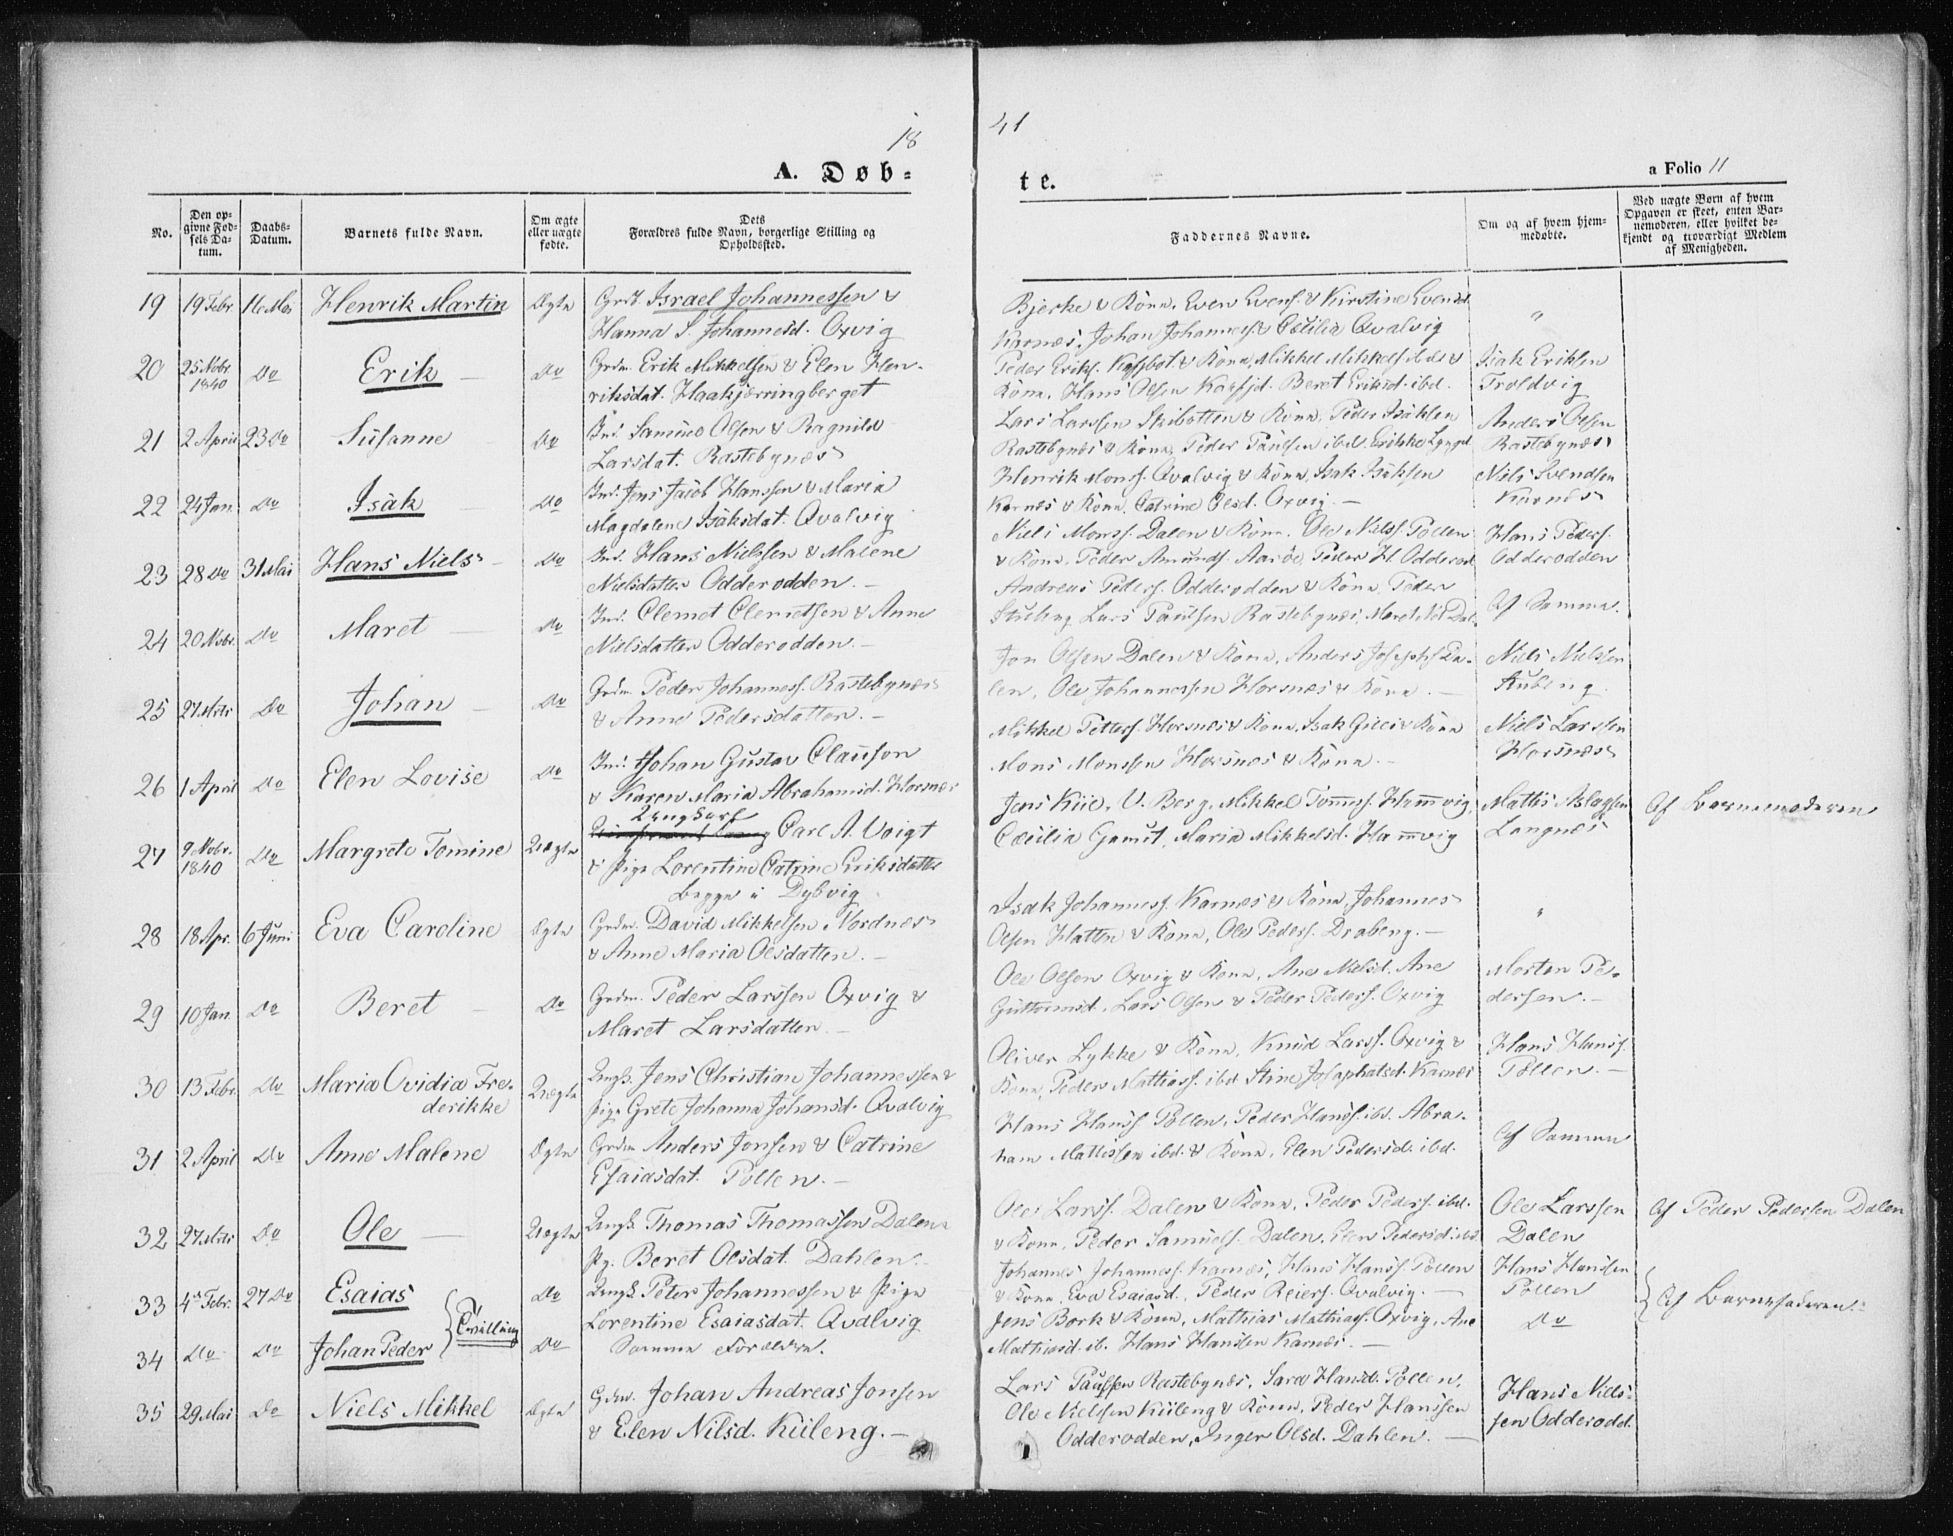 18
41
A. Døb-
te.
a Folio 11
No.
Den op-
givne Fød-
sels Da-
tum.
Daabs-
Datum.
Barnets fulde Navn.
Om ægte
eller uægte
fødte.
Dets
Forældres fulde Navn, borgerlige Stilling og
Opholdssted.
Faddernes Navne.
Om og af hvem hjem-
medøbte.
Ved uægte Børn af hvem
Opgaven er skeet, enten Bar-
nemoderen, eller hvilket be-
kjendt og troværdigt Medlem
af Menigheden.
19 19 Febr. 16 Mai Henrik Martin Ægte Israel Johannessen &
Hanna S. Johannesd. Oxvig
Bjerke & Kone, Even Evens. & Kirstine Evensd.
Karnæs, Johan Johanness. & Cecilia Qvalvig
"
20 25 Nobr. 1840 Do Erik Do Grdm. Erik Mikkelsen & Elen Hen-
riksdat. Haakjerringberget
Peder Eriks. & Kone, Mikkel Mikkels. ibd. &
Kone, Hans Olsen Beret Eriksd. ibd.
Isak Eriksen
Troldvig
21 2 April 23 Do Susanne Do Ind. Samuel Olsen & Ragnild
Larsdat. Rastebynæs
Lars Larsen Skibotten & Kone, Peder Isaksen
Rastebynæs & Kone, Peder Paulsen ibd.
Anders Olsen
Rastebynæs
22 24 Jan. Do Isak Do Ind. Jens Jacob Hanssen & Maria
Magdalene Isaksdat. Qvalvig
Henrik Monss. Qvalvig & Kone, Isak Isaksen
Karnæs & Kone, Catrine Olsd. Oxvig.
Niels Svendsen
Karnæs
23 28 Do 31 Mai Hans Niels Do Ind. Hans Nielssen & Malene
Nielsdatter Odderodden.
Niels Monss. Dalen & Kone, Ole Nielss. Pollen
& Kone, Peder Amunds. Aaröe, Peder H. Odderod
Hans Peders.
Odderodden
24 20 Nobr. Do Maret Do Ind. Clemet Clemetsen & Anne
Nielsdatter Odderodden.
Andreas Peders. Odderodden & Kone, Peder
Lars Paulsen Rastebynæs, Maret Dal.
Af Samme.
25 27 Do Johan Do Grdm. Peder Johanness. Rastebynæs
& Anne Pedersdatter.
Jon Olsen Dalen & Kone, Anders Josephs. Da-
len, Ole Johannessen Horsnæs & Kone.
Niels Nielssen
26 1 April Do Elen Lovise Do Ind. Johan Gustav Clauson
& Karen Maria Abrahamsd. Horsnæs
Mikkel Petters. Horsnæs & Kone, Isak & Kone
Mons Monssen Horsnæs & Kone.
Niels Larssen
Horsnæs
27 9 Nobr. 1840 Do Margrete Tomine Uægte
Ungkarl Carl A. Voigt
& Pige Lorentine Catrine Eriksdatter
begge i Dybvig
Jens Kiil, V. Berg, Mikkel Hamvig,
Cæcilia Gamst, Maria Mikkelsd. Hamvig
Mathis Aslagsen
Langnæs
Af Barnemoderen
28 18 Apr. 6 Juni Eva Caroline Ægte Grdm. David Mikkelsen, Nordnæs
& Anne Maria Olsdatter.
Isak Johanness. Karnæs & Kone, Johannes
Olsen Hatten & Kone, Ole Peders. Drabeng.
"
29 10 Jan. Do Beret Do Grdm. Peder Larssen Oxvig &
Maret Larsdatter.
Ole Olsen Oxvig & Kone, Ane Nielsd. Ane
Guttormsd. Lars Olsen & Peder Peders. Oxvig
Morten Pe-
dersen.
30 13 Febr. Do Maria Ovidia Fre-
derikke Uægte Ungk. Jens Christian Johannessen &
Pige Grete Johanna Johansd. Qvalvig
Oliver Lykke & Kone, Knud Larss. Oxvig &
Kone, Peder Mathiass. ibd. Stine Josaphatsd. Karnæs
Hans Hanss.
Pollen.
31 2 April Do Anne Malene Ægte Grdm. Anders Jonsen & Catrine
Esaiasdat. Pollen.
Hans Hanss. Pollen, Peder Hanss. ibd. Abra-
ham Mattissen ibd. & Kone, Elen Pedersd. ibd.
Af Samme
32 27 Do Ole Uægte Ungk. Thomas Thomassen Dalen
Pg. Beret Olsdat. Dahlen.
Ole Larss. Dalen & Kone, Peder Peders. ibd.
& Kone, Peder Samuels. Dalen, Elen Pedersd. ibd.
Ole Larssen
Dalen
Af Peder Pedersen Dalen
33 4de Febr. 27 Do Esaias Do Ungk. Peter Johannessen & Pige
Lorentine Esaiasdat. Qvalvig
Johannes Johanness. Karnæs, Hans Hanss. Pollen
& Kone, Eva Esaiasd., Peder Reiers. Qvalvig.
Hans Hanssen
Pollen
Af Barnefaderen.
Tvilling
34 Do Do Johan Peder Do Samme Forældre.
Jens Bork & Kone, Mathias Mathiass. Oxvig, Ane
Mathiasd. ib. Hans Hanssen Karnæs.
Do
35 29 Mai Do Niels Mikkel Ægte Grdm. Johan Andreas Jonsen
& Elen Nilsd. Kileng.
Lars Paulssen Rastebynæs, Sara Hansd. Pollen,
Ole Nielsen Kileng & Kone, Peder Hanssen
Odderodden, Inger Olsd. Dahlen.
Hans Niels-
sen Odderodd.